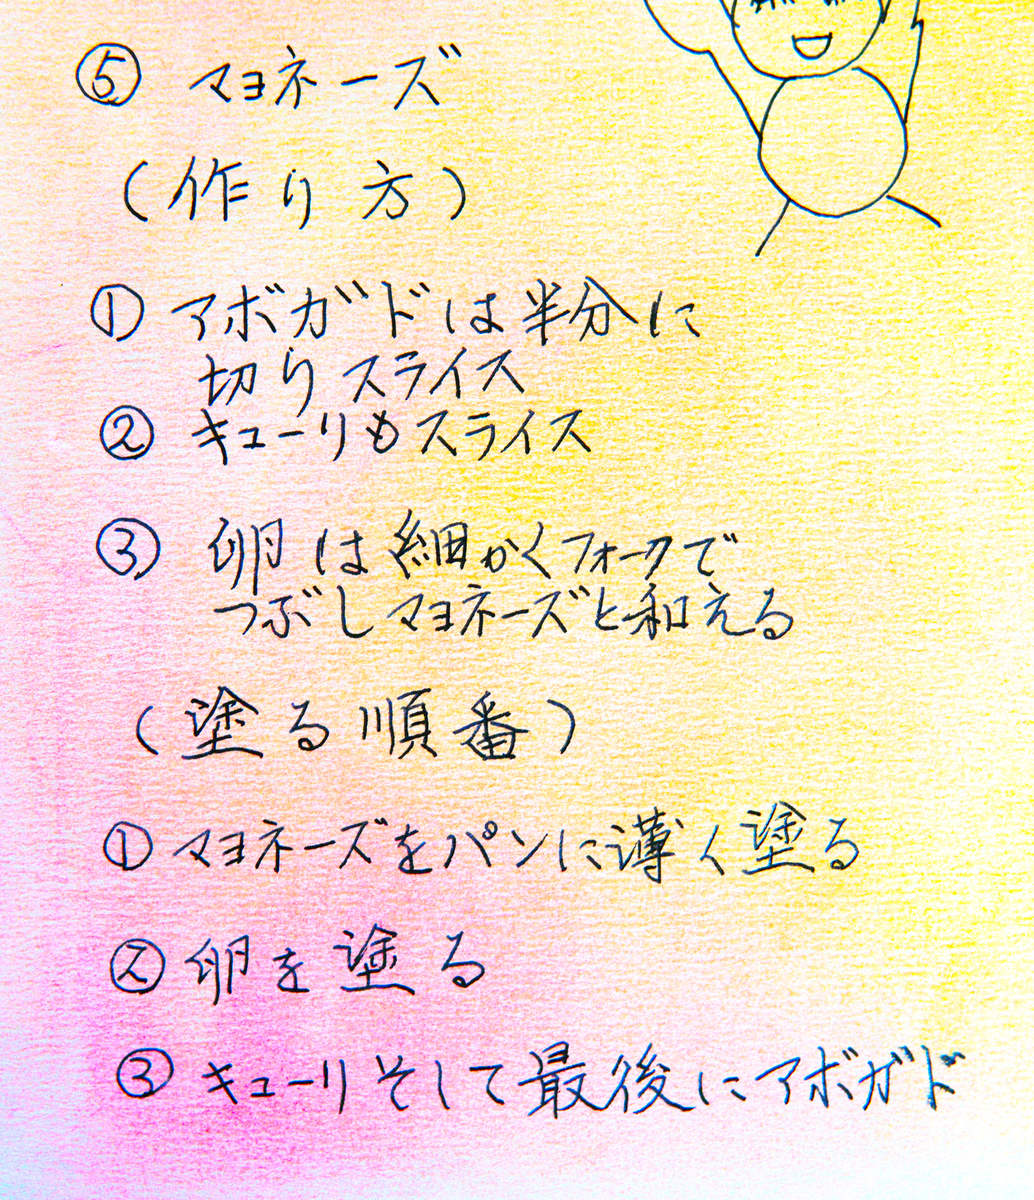 ⑤ マヨネーズ
(作り方)
① アボガドは半分に
切りスライス
② キューリもスライス
③ 卵は細かくフォークで
つぶしマヨネーズと和える
(塗る順番)
① マヨネーズをパンに薄く塗る
② 卵を塗る
③ キューリそして最後にアボガド